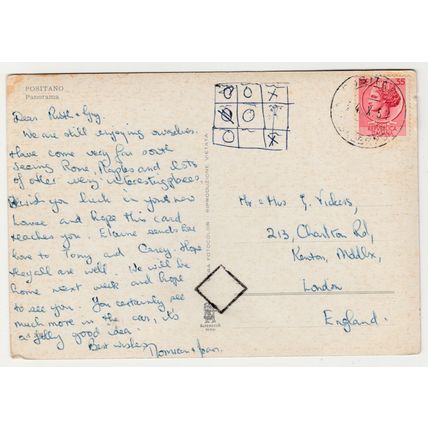 POSITANO
Panorama
Dear Ruth + Guy.
We are still enjoying ourselves.
Have come very far south
seeing Rome, Naples and lots
of other very interesting places.
Wish you luck in your new
house and hope this card
reaches you. Elaine sends her
love to Tony and Carey. Hope
they all are well. We will be
home next week and hope
to see you. You certainly see
much more in the car, it's
a jolly good idea.
Best wishes
+ Joan.
O O X
O O X
O X
RIPRODUZIONE VIETATA
55
REPUBBLICA
Mr + Mrs G. Vickers,
213, Charlton Rd,
Kenton, Middlx,
London
England.